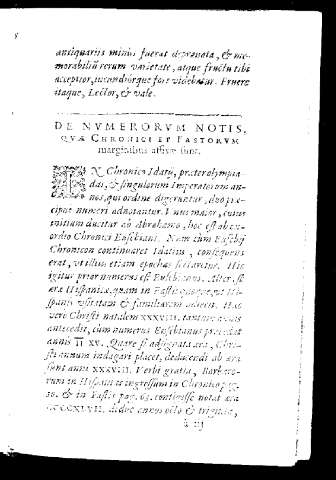 antiquariis mihi fuerat depromta, & me-
morabiliũ rerum varietate, atque fructu tibi
acceptior, iucundiorque fore videbatur. Fruere
itaque, Lector, & vale.
DE NVMERORVM NOTIS,
QVÆ CHRONICI ET FASTORVM
marginibus affixæ sunt.
IN Chronico Idatij, præter olympia-
das, & singulorum Imperatorum an-
nos, qui ordine digeruntur, duo præ-
cipuè numeri adnotantur. Vnus maior, cuius
initium ducitur ab Abrahamo, hoc est ab ex-
ordio Chronici Eusebiani. Nam cùm Eusebij
Chronicon continuaret Idatius, consequens
erat, vt illius etiam epochas sectaretur. Hic
igitur prior numerus est Eusebianus. Alter, est
æræ Hispanicæ, quam in Fastis quoque, vt His-
panis vsitatam & familiarem adiecit. Hæc
verò Christi natalem XXXVIII. tantùm annis
antecedit, cùm numerus Eusebianus præcedat
annis XV. Quare si adsignata æra, Chri-
sti annum indagari placet, deducendi ab æra
sunt anni XXXVIII. Verbi gratia, Barbaro-
rum in Hispanias ingressum in Chronico
& in Fastis pag. contigisse notat æra
deduc annos octo & triginta,
ã iij